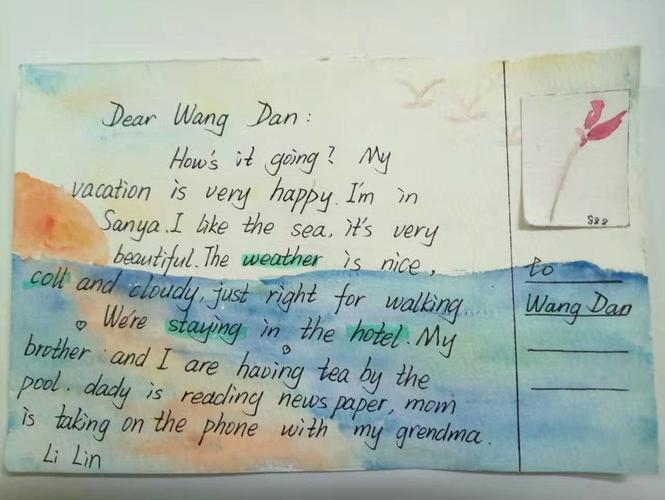 Dear Wang Dan:
How's it going? My
vacation is very happy. I'm in
Sanya. I like the sea, it's very
beautiful. The weather is nice,
coll and cloudy, just right for walking
We're staying in the hotel. My
brother and I are having tea by the
pool. dady is reading news paper, mom
is taking on the phone with my grandma.
Li Lin
888
to
Wang Dan